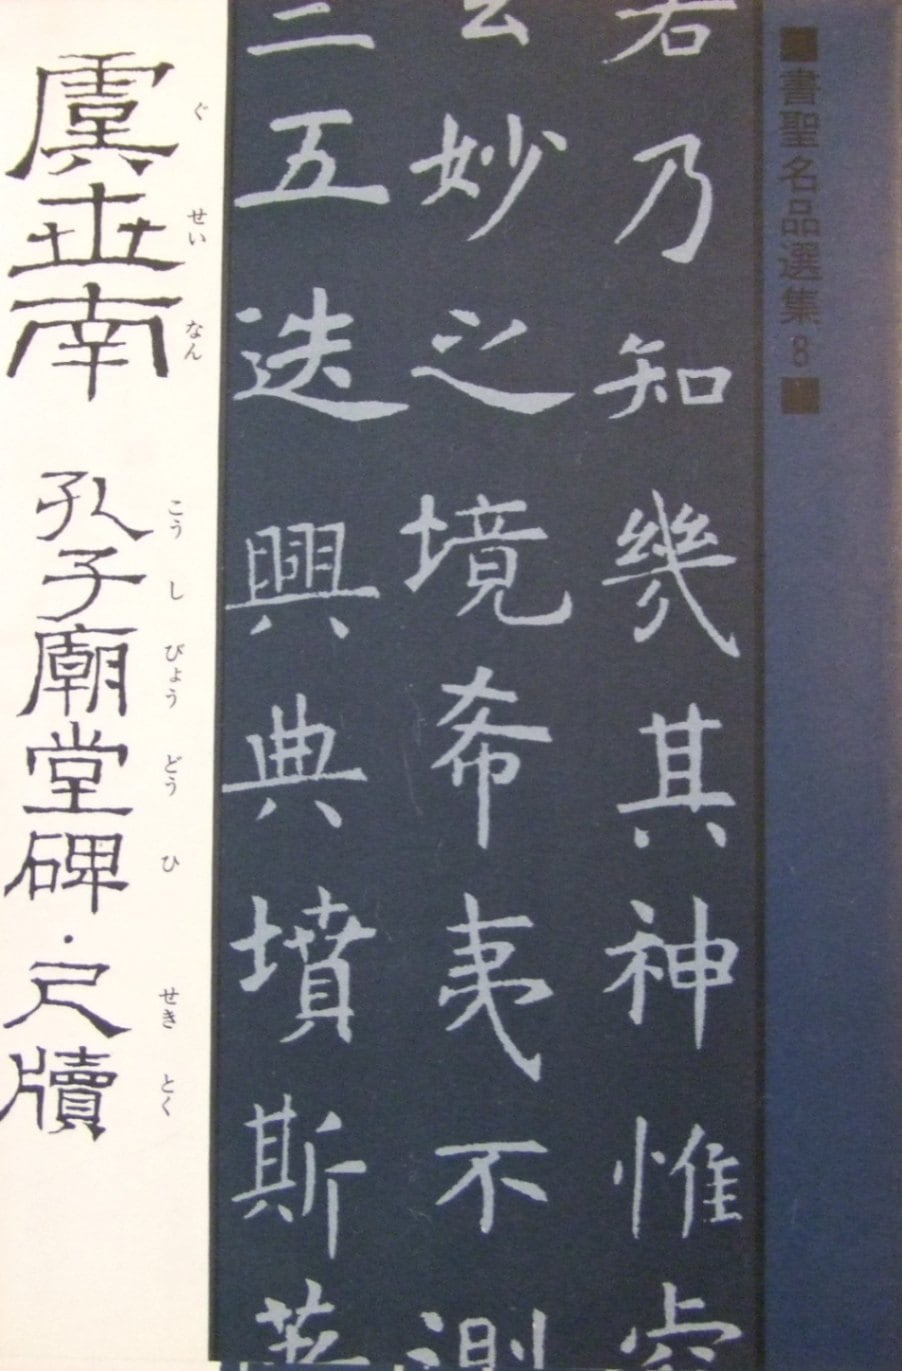 ■書聖名品選集8■
若乃知幾其神惟睿
玄妙之境希夷不測
二五迭興典墳斯著
虞世南 孔子廟堂碑・尺牘
ぐ せい なん こう し びょう どう ひ せき とく